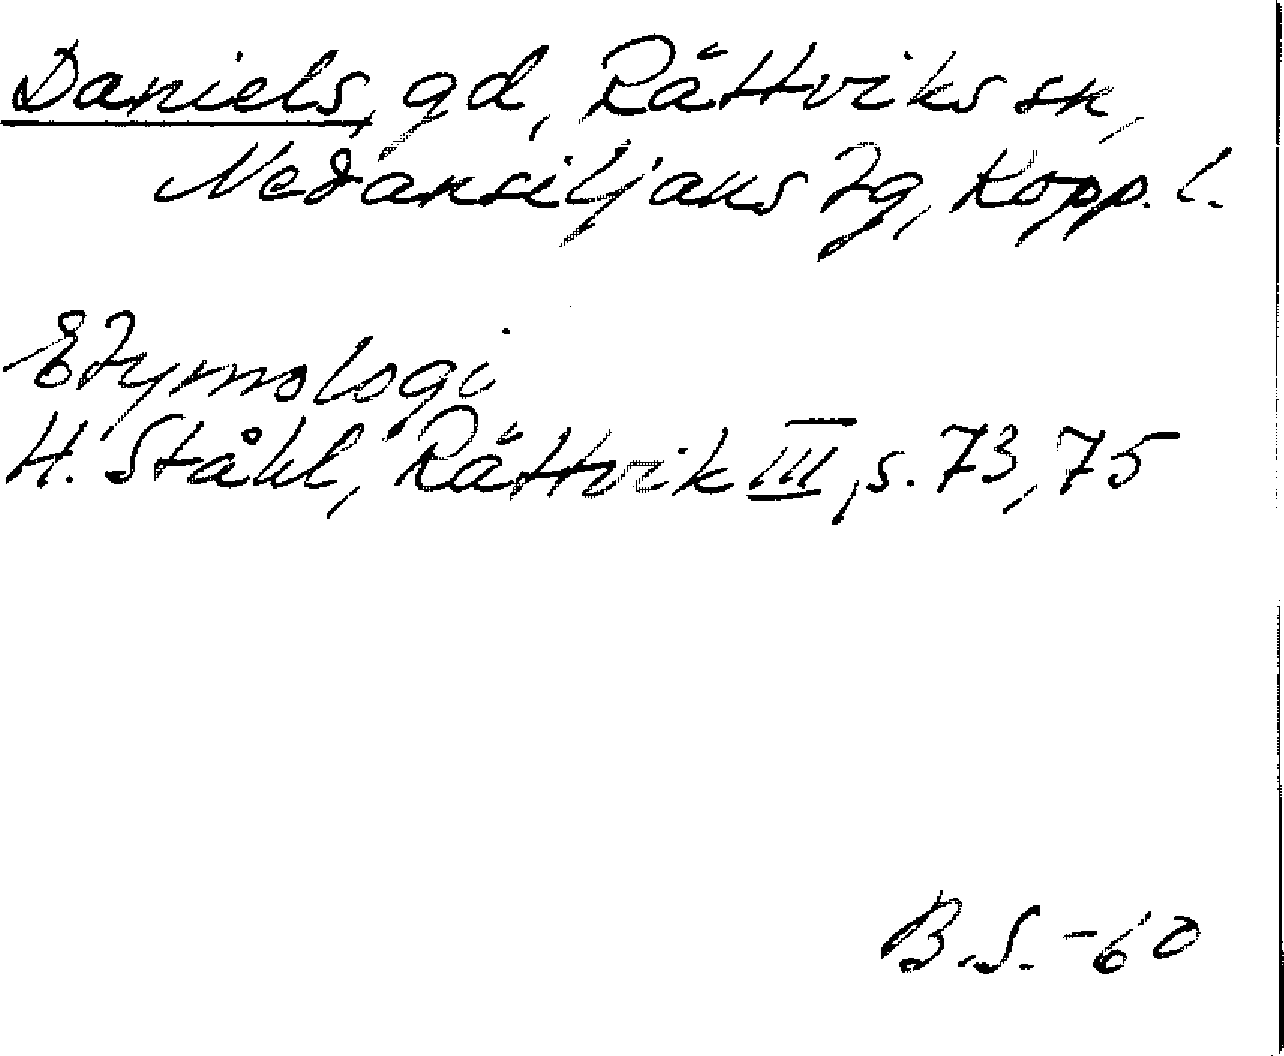 Daniels, gd, Rättviks sn,
Nedansiljans tg, Kopp. l.
Etymologi
H. Ståhl, Rättvik III, s. 73, 75
B.S. -60